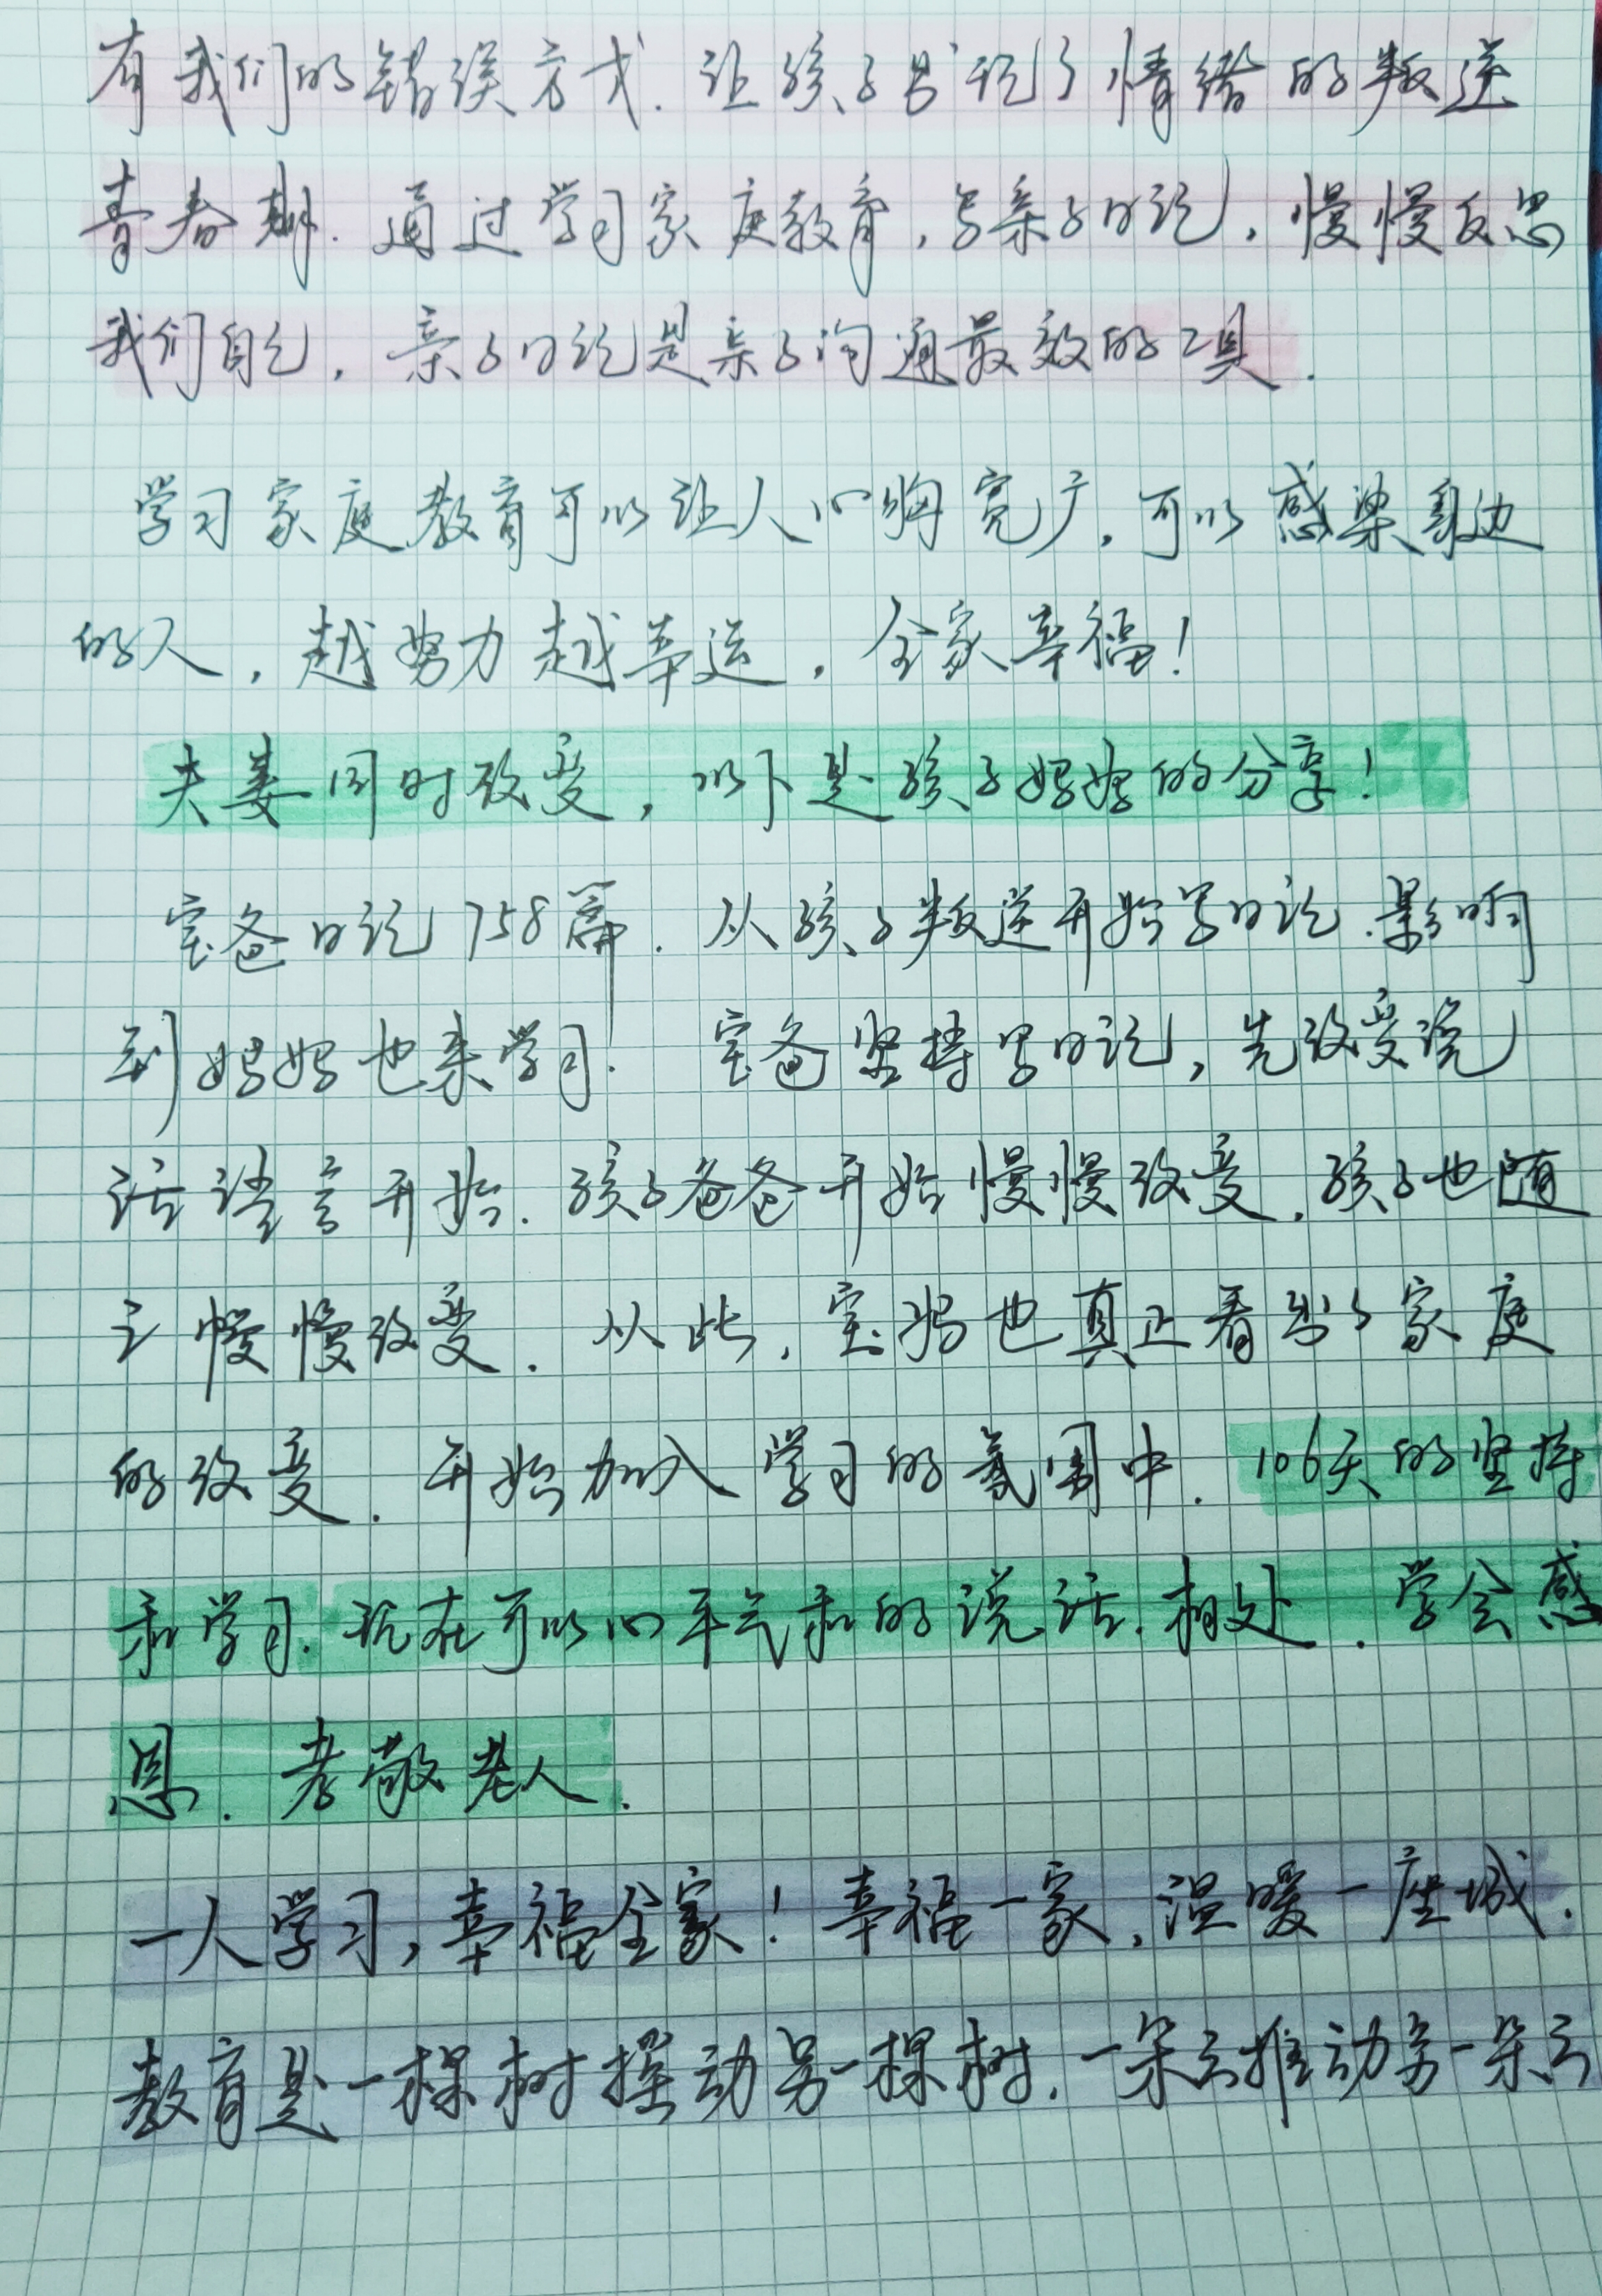 有我们的错误方式.让孩子出现了情绪的叛逆
青春期.通过学习家庭教育,写亲子日记,慢慢反思
我们自己,亲子日记是亲子沟通最效的工具.
学习家庭教育可以让人心胸宽广,可以感染身边
的人,越努力越幸运,全家幸福!
夫妻同时改变,以下是孩子妈妈的分享!
宝爸日记758篇.从孩子叛逆开始写日记.影响
到妈妈也来学习.宝爸坚持写日记,先改变说
话语言开始.孩子爸爸开始慢慢改变.孩子也随
之慢慢改变.从此,宝妈也真正看到了家庭
的改变.开始加入学习的氛围中.106天的坚持
和学习.现在可以心平气和的说话.相处.学会感
恩.孝敬老人.
一人学习,幸福全家!幸福一家,温暖一座城.
教育是一棵树摇动另一棵树.一朵云推动另一朵云